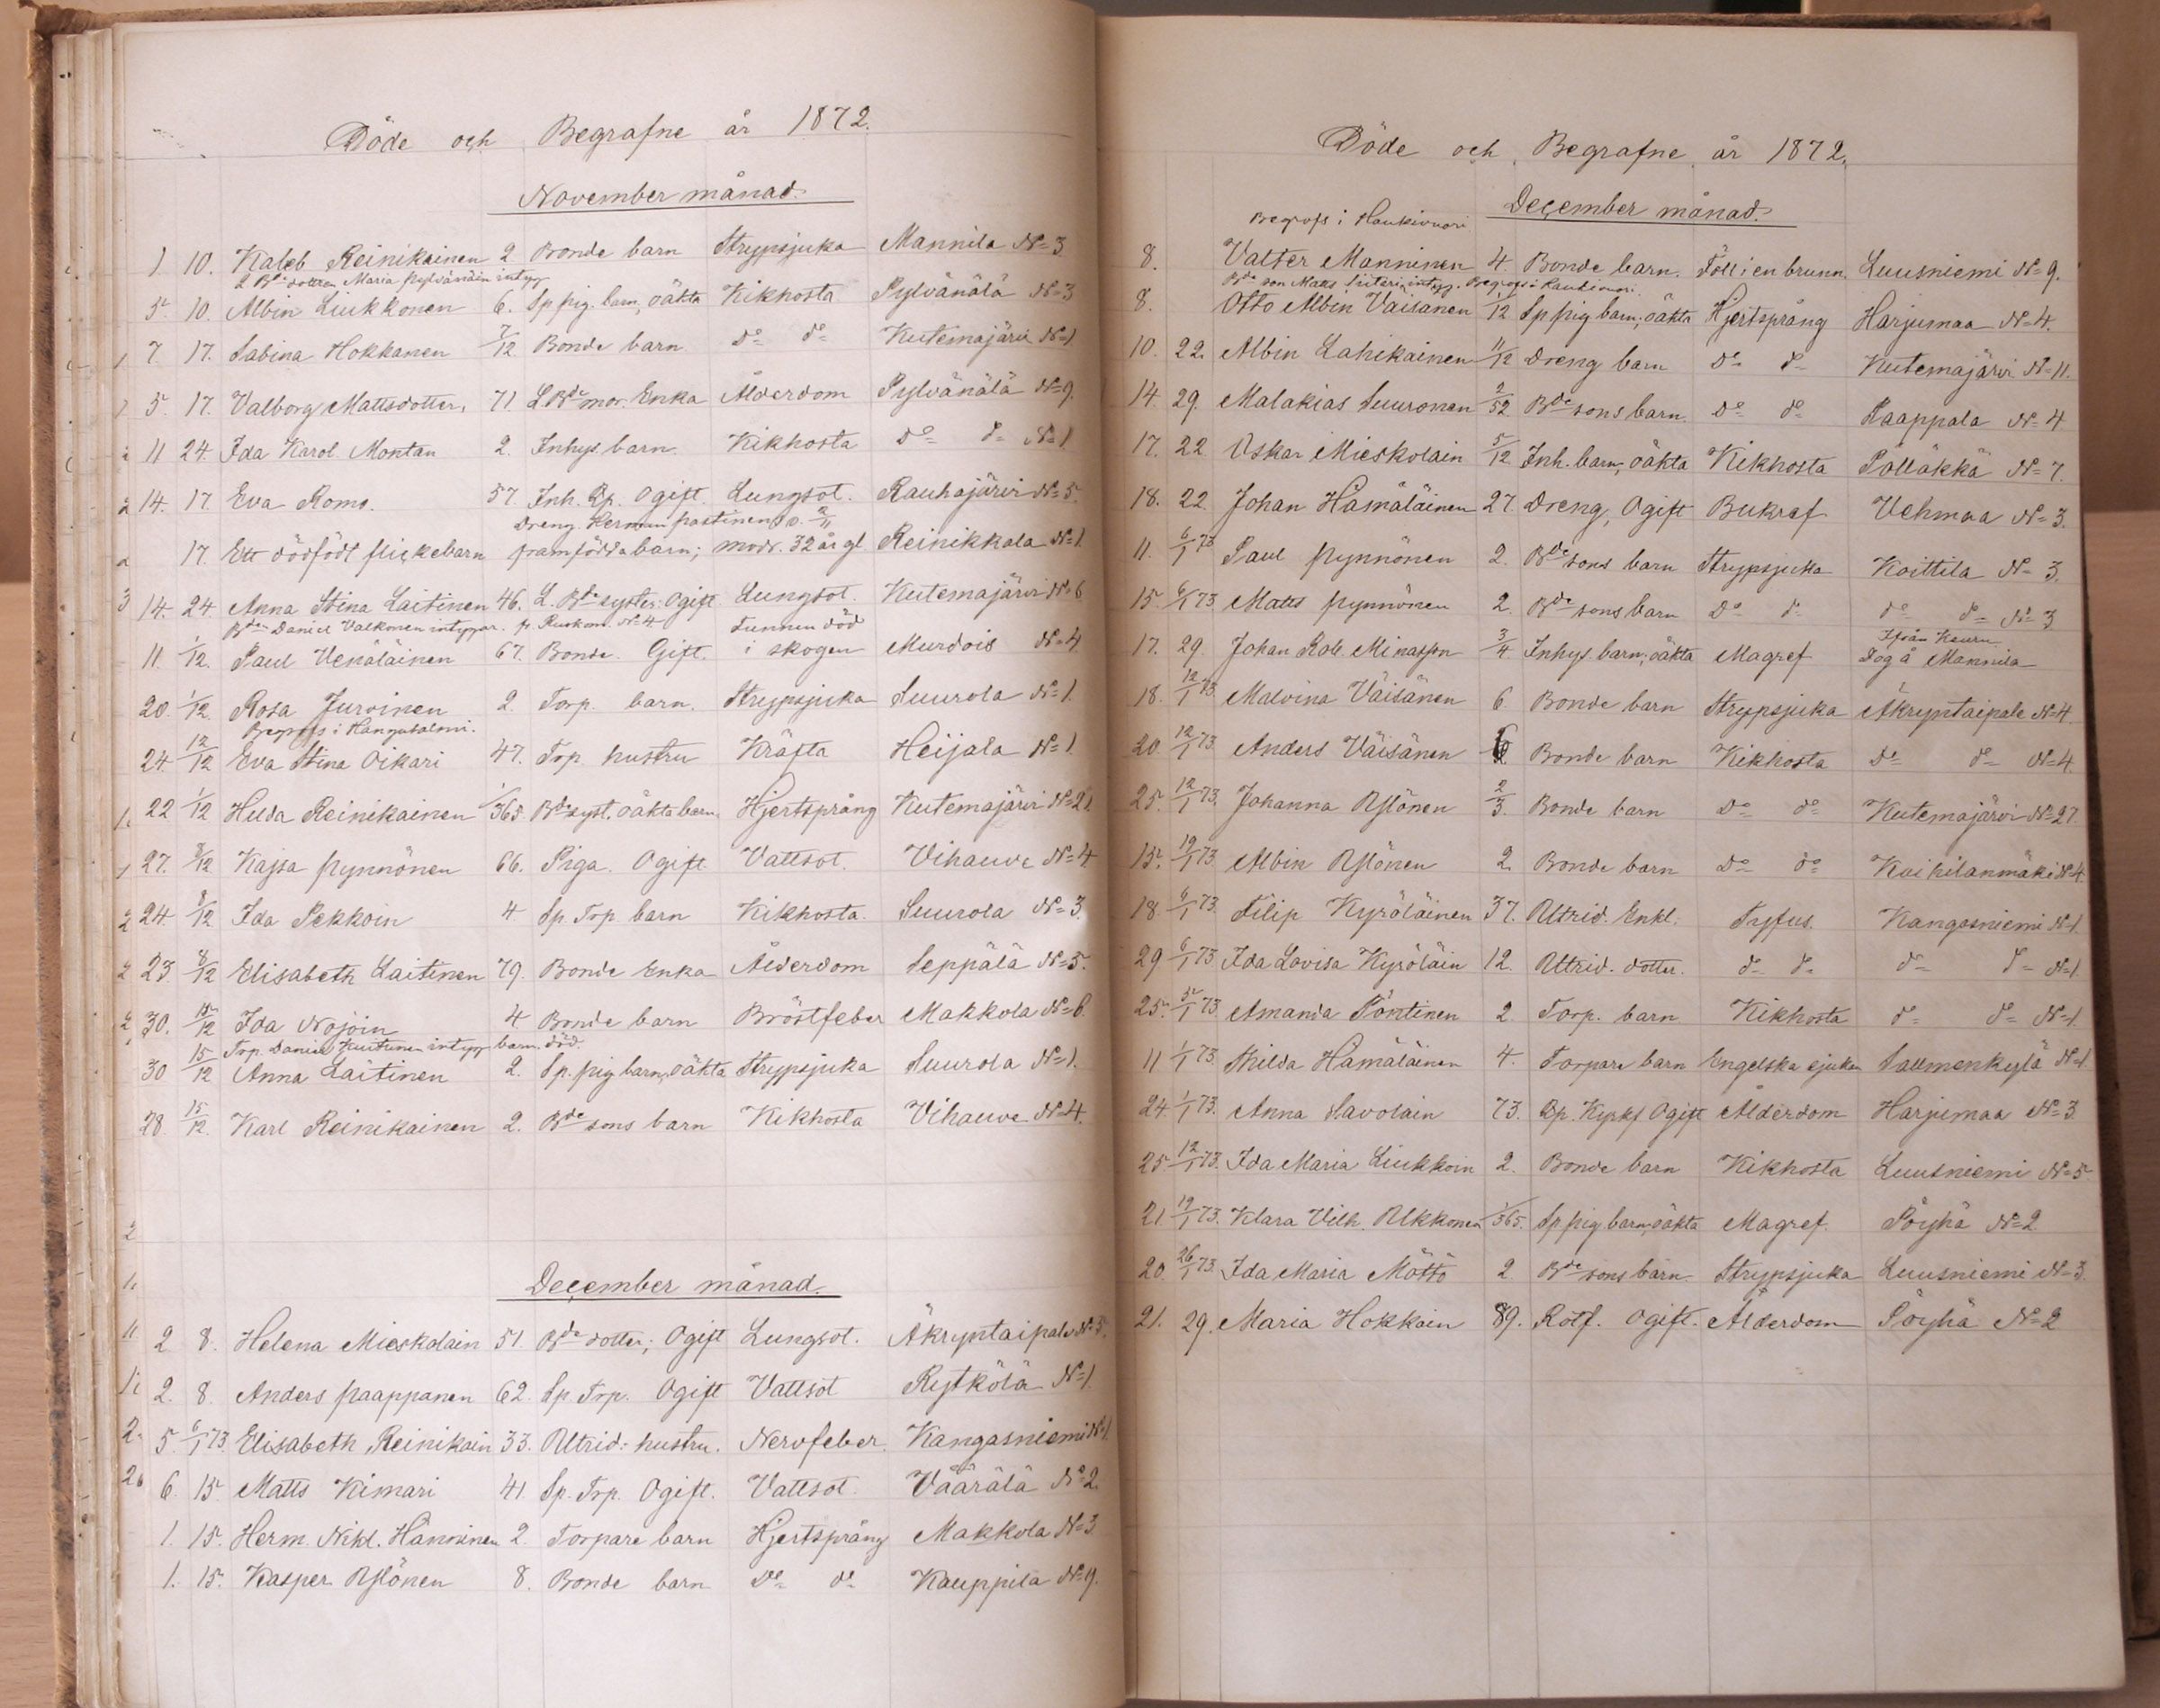 Döde och Begrafne år 1872.
November månad.
1 10. Kaleb Reinikainen 2 Bonde barn Strypsjuka Mannila N=3
L. Bde dottren Maria Pylvänäin intyg
5. 10. Albin Liukkonen 6. Sp pig. barn, oäkta Kikhosta Pylvänälä N=3
7. 17. Sabina Hokkanen 7/12 Bonde barn Do do Kutemajärvi N=1
5. 17. Valborg Mattsdotter, 71. L Bde mor. Enka Ålderdom Pylvänälä N=9.
11 24. Ida Karol. Montan 2. Inhys barn Kikhosta Do do N=1
14. 17. Eva Romo. 57. Inh. Qp. Ogift. Lungsot. Rauhajärvi N=5.
Dreng Herman Pastinens
17. Ett dödfödt flickebarn framfödda barn; modr. 32 år gl Reinikkala N=1.
14. 24. Anna Stina Laitinen 46. L. Bde syster. Ogift Lungsot. Kutemajärvi N=6
Bde Daniel Valkonen intygar. fr. N=4 Funnen död
11. 1/12. Paul Venäläinen 67. Bonde. Gift. i skogen Murdois N=4
20. 1/12. Rosa Jurvinen 2. Torp. barn. Strypsjuka Suurola N=1.
Begrofs i Hangastalmi.
24. 12/12 Eva Stina Oikari 47. Torp hustru Kräfta Heijala N=1.
22 1/12 Hilda Reinikainen 1/365. Bde syst. oäkta barn. Hjertsprång Kutemajärvi N=21.
27. 8/12 Kajsa Pynnönen 66. Piga. Ogift Vattsot. Vihauva N=4
24. 8/12 Ida Pekkoin 4 Sp. Torp. barn Kikhosta. Suurola N=3.
23. 8/12 Elisabeth Laitinen 79. Bonde Enka Ålderdom Seppälä N=5.
30. 15/12 Ida Nojoin 4 Bonde barn Bröstfeber Makkola N=6.
Torp. Daniel Kuitunen intyg barn. död.
30 15/12 Anna Laitinen 2. Sp. pig barn, oäkta Strypsjuka Suurola N=1.
28. 15/12. Karl Reinikainen 2. Bde sons barn Kikhosta Vihauva N=4.
December månad.
2 8. Helena Mieskolain 51. Bde dotter; Ogift Lungsot. Äkryntaipale N=5.
2. 8. Anders Paappanen 62. Sp. Torp. Ogift Vattsot Rytkölä N=1.
5. 6/1 73. Elisabeth Reinikain 33. Attrid: hustru. Nervfeber. Kangasniemi N=1.
6. 15. Matts Kimari 41. Sp. Torp. Ogift. Vattsot. Väärälä N=2.
1. 15. Herm. Nikl. Hänninen 2. Torpare barn Hjertsprång Makkola N=3.
1. 15. Kasper Asönen 8. Bonde barn Do do Kauppila N=9.
Döde och Begrafne år 1872.
December månad.
Begrofs i Haukivuori
8. Valter Manninen 4. Bonde barn. Föll i en brunn. Luusniemi N=9.
Bde son Matts intyg. Begrofs i Haukivuori.
8. Otto Albin Väisänen 1/12 Sp pig barn; oäkta Hjertsprång Harjumaa N=4.
10. 22. Albin Lahikainen 11/12 Dreng barn Do do Kutemajärvi N=11.
14. 29. Malakias Suuronen 2/52. Bde sons barn. Do do Paappala N=4
17. 22 Oskar Mieskolain 5/12 Inh. barn, oäkta Kikhosta Pölläkkä N=7.
18. 22. Johan Hämäläinen 27. Dreng, Ogift Bukref Vehmaa N=3.
11. 6/1 73 Paul Pynnönen 2. Bde sons barn Strypsjuka Koittila N=3.
15. 6/1 73. Matts Pynnönen 2. Bde sons barn Do do do do N=3
Ifrån Keuru
17. 29. Johan Rob. Minasson 3/4. Inhys. barn; oäkta Magref Tog å Mannila
18. 12/1 73. Malvina Väisänen 6 Bonde barn Strypsjuka Äkryntaipale N=4.
20. 12/1 73. Anders Väisänen 6 Bonde barn Kikhosta Do do N=4.
25. 12/1 73. Johanna Asönen 2/3. Bonde barn Do do Kutemajärvi N=27.
15. 19/1 73. Albin Asönen 2. Bonde barn Do do Koikilanmäki N=4.
18. 6/1 73. Filip Kyröläinen 37. Attrid. Enkl. Tyfus. Kangasniemi N=1.
29 6/1 73 Ida Lovisa Kyröläin 12. Attrid. dotter. do do do do N=1
25. 5/1 73. Amanda Pöntinen 2. Torp. barn Kikhosta do do N=1.
11. 1/1 73. Hilda Hämäläinen 4. Torpare barn Engelska sjukan Sallmenkylä N=1.
24. 1/1 73. Anna Savolain 73. Qp. Kyrkf Ogift Ålderdom Harjumaa N=3.
25. 12/1 73. Ida Maria Liukkoin 2. Bonde barn Kikhosta Luusniemi N=5
21. 19/1 73. Klara Vilh. Ukkonen 1/365. Sp pig barn, oäkta Magref. Pöyhä N=2.
20. 26/1 73. Ida Maria Möttö 2. Bde sons barn. Strypsjuka Luusniemi N=3.
21. 29. Maria Hokkain 89. Rotf. Ogift. Ålderdom Pöyhä N=2